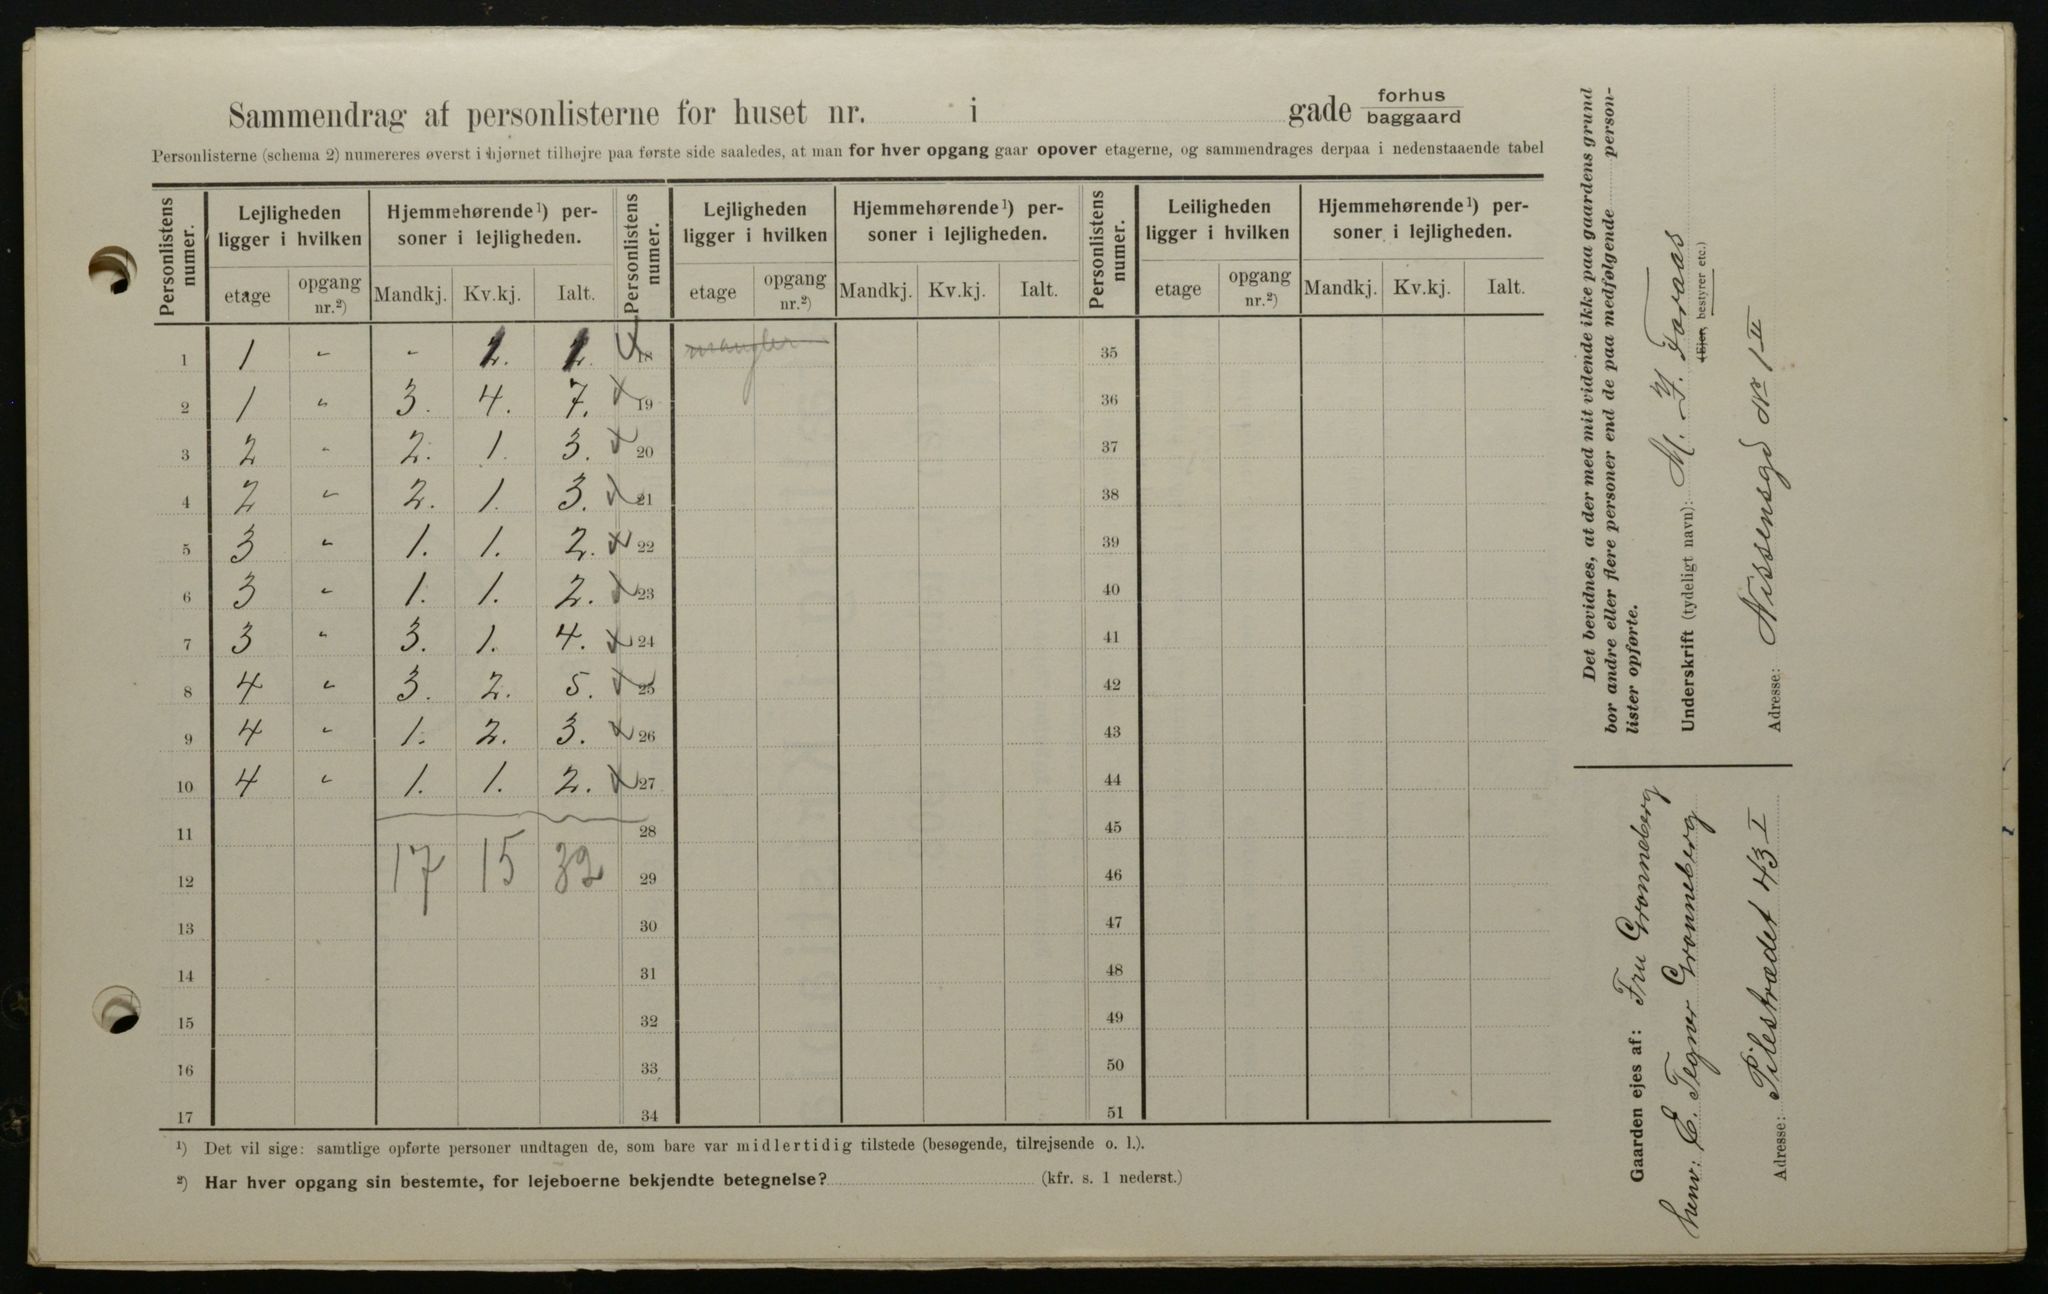 Sammendrag af personlisterne for huset nr. i gade forhus baggaard
Personlisterne (schema 2) numereres øverst i hjørnet tilhøjre paa første side saaledes, at man for hver opgang gaar opover etagerne, og sammendrages derpaa i nedenstaaende tabel
Personlistens numer. Lejligheden ligger i hvilken Hjemmehørende¹) personer i lejligheden. Personlistens numer. Lejligheden ligger i hvilken Hjemmehørende¹) personer i lejligheden. Personlistens numer. Leiligheden ligger i hvilken Hjemmehørende¹) personer i lejligheden.
etage opgang nr.²) Mandkj. Kv.kj. Ialt. etage opgang nr.²) Mandkj. Kv.kj. Ialt. etage opgang nr.²) Mandkj. Kv.kj. Ialt.
1 1 " " 18 mangler 35
2 1 " 3. 4. 7. 19 36
3 2 " 2. 1. 3. 20 37
4 2 " 2. 1. 3. 21 38
5 3 " 1. 1. 2. 22 39
6 3 " 1. 1. 2. 23 40
7 3 " 3. 1. 4. 24 41
8 4 " 3. 2. 5. 25 42
9 4 " 1. 2. 3. 26 43
10 4 " 1. 1. 2. 27 44
11 28 45
12 17 15 32 29 46
13 30 47
14 31 48
15 32 49
16 33 50
17 34 51
¹) Det vil sige: samtlige opførte personer undtagen de, som bare var midlertidig tilstede (besøgende, tilrejsende o. l.).
²) Har hver opgang sin bestemte, for lejeboerne bekjendte betegnelse? (kfr. s. 1 nederst.)
Det bevidnes, at der med mit vidende ikke paa gaardens grund
bor andre eller flere personer end de paa medfølgende personlister opførte.
Underskrift (tydeligt navn): M. F. Foraas
(Eier, bestyrer etc.)
Adresse: Nissensgd No 1 II
Gaarden ejes af: Fru Grønneberg
henv: E. Tegner Grønneberg
Adresse: Pilestrædet 43 I